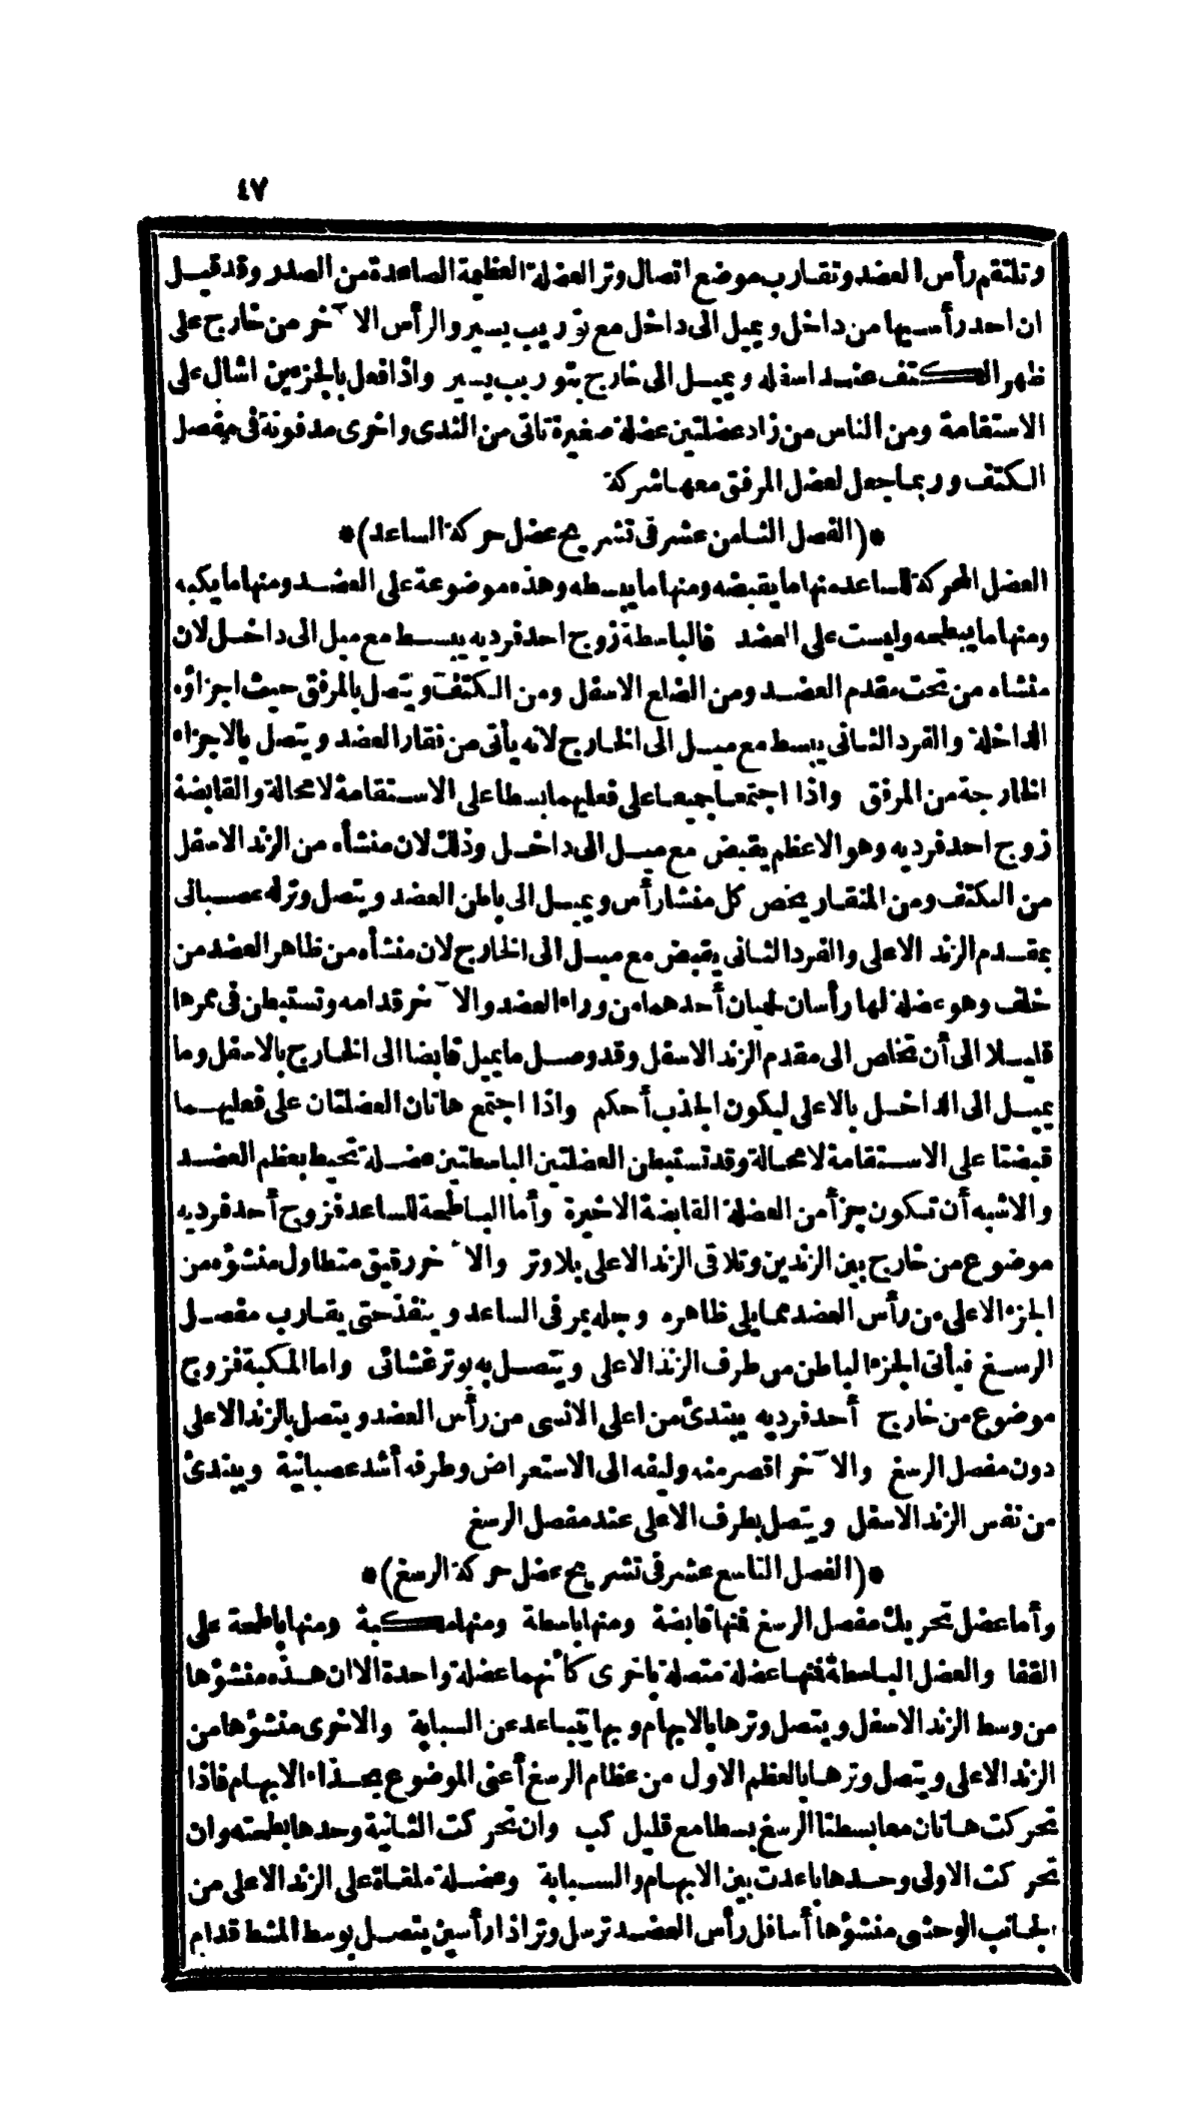 ٤٧
وتلتقم رأس العضد وتقارب موضع اتصال وتر العضلة العظيمة الصاعدة من الصدر وقد قيل
ان احد رأسيها من داخل ويميل الى داخل مع توريب يسير والرأس الآخر من خارج على
ظهر الكتف عند اسفله ويميل الى خارج بتوريب يسير واذا فعل بالجزءين اشال على
الاستقامة ومن الناس من زاد عضلتين عضلة صغيرة تاتى من الثدى واخرى مدفونة فى مفصل
الكتف وربما جعل لعضل المرفق معها شركة
*(الفصل الثامن عشر فى تشريح عضل حركة الساعد)*
العضل المحركة للساعد منها ما يقبضه ومنها ما يبسطه وهذه موضوعة على العضد ومنها ما يكبه
ومنها ما يبطحه وليست على العضد فالباسطة زوج احد فرديه يبسط مع ميل الى داخل لان
منشاه من تحت مقدم العضد ومن الضلع الاسفل ومن الكتف ويتصل بالمرفق حيث اجزاؤه
الداخلة والفرد الثانى يبسط مع ميل الى الخارج لانه يأتى من فقار العضد ويتصل بالاجزاء
الخارجة من المرفق واذا اجتمعا جميعا على فعليهما بسطا على الاستقامة لا محالة والقابضة
زوج احد فرديه وهو الاعظم يقبض مع ميل الى داخل وذلك لان منشأه من الزند الاسفل
من الكتف ومن المنقار يخص كل منشا رأس ويميل الى باطن العضد ويتصل وتر له عصبانى
بمقدم الزند الاعلى والفرد الثانى يقبض مع ميل الى الخارج لان منشأه من ظاهر العضد من
خلف وهو عضلة لها رأسان لحميان أحدهما من وراء العضد والآخر قدامه وتستبطن فى ممرها
قليلا الى أن تخلص الى مقدم الزند الاسفل وقد وصل ما يميل قابضا الى الخارج بالاسفل وما
يميل الى الداخل بالاعلى ليكون الجذب أحكم واذا اجتمع هاتان العضلتان على فعليهما
قبضتا على الاستقامة لا محالة وقد تستبطن العضلتين الباسطتين عضلة تحيط بعظم العضد
والاشبه أن تكون جزأ من العضلة القابضة الاخيرة وأما الباطحة للساعد فزوج أحد فرديه
موضوع من خارج بين الزندين وتلاقى الزند الاعلى بلا وتر والآخر رقيق متطاول منشؤه من
الجزء الاعلى من رأس العضد مما يلى ظاهره وجله يمر فى الساعد وينفذ حتى يقارب مفصل
الرسغ فيأتى الجزء الباطن من طرف الزند الاعلى ويتصل به بوتر غشائى واما المكبة فزوج
موضوع من خارج أحد فرديه يبتدئ من اعلى الانسى من رأس العضد ويتصل بالزند الاعلى
دون مفصل الرسغ والآخر اقصر منه وليفه الى الاستعراض وطرفه أشد عصبانية ويبتدئ
من نفس الزند الاسفل ويتصل بطرف الاعلى عند مفصل الرسغ
*(الفصل التاسع عشر فى تشريح عضل حركة الرسغ)*
وأما عضل تحريك مفصل الرسغ فمنها قابضة ومنها باسطة ومنها مكبة ومنها باطحة على
القفا والعضل الباسطة فمنها عضلة متصلة باخرى كأنهما عضلة واحدة الا ان هذه منشؤها
من وسط الزند الاسفل ويتصل وترها بالابهام وبها يتباعد عن السبابة والاخرى منشؤها من
الزند الاعلى ويتصل وترها بالعظم الاول من عظام الرسغ أعنى الموضوع بحذاء الابهام فاذا
تحركت هاتان معا بسطتا الرسغ بسطا مع قليل كب وان تحركت الثانية وحدها بطحته وان
تحركت الاولى وحدها باعدت بين الابهام والسبابة وعضلة ملقاة على الزند الاعلى من
الجانب الوحشى منشؤها أسافل رأس العضد ترسل وترا ذا رأسين يتصل بوسط المشط قدام